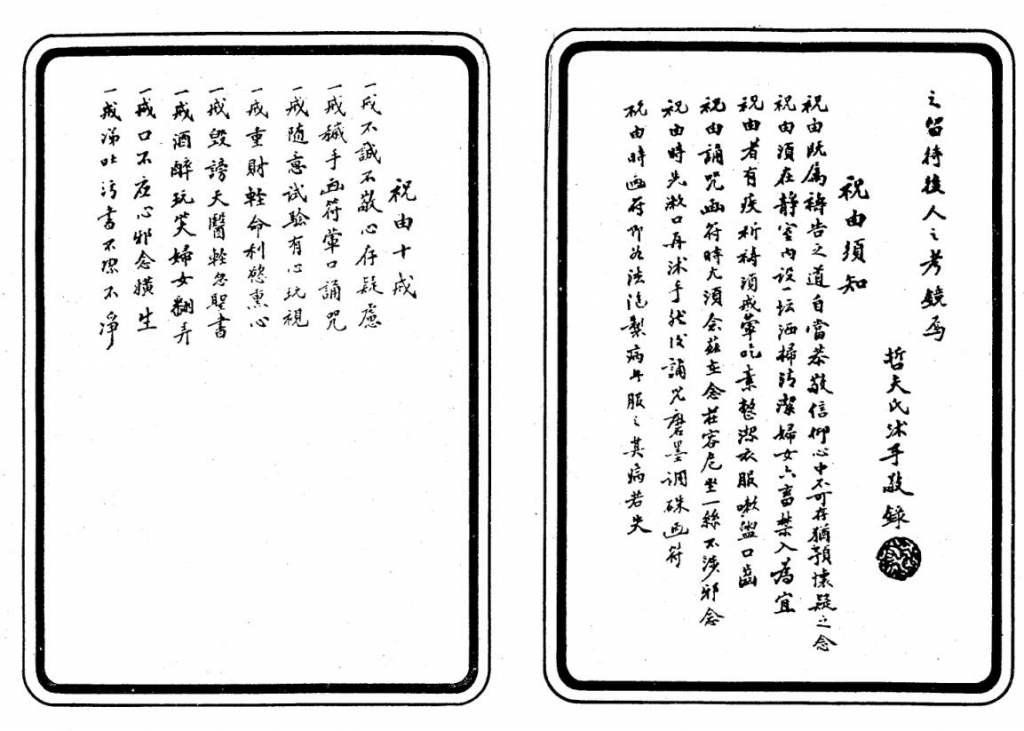 之留待後人之考鏡焉
哲夫氏沐手敬錄
祝由須知
祝由既屬禱告之道自當恭敬信仰心中不可存猶預懷疑之念
祝由須在靜室內设一坛洒掃清潔婦女六畜禁入為宜
祝由者有疾祈禱須戒葷吃素整潔衣服漱盥口齒
祝由誦咒画符時尤須念茲在念莊容危坐一絲不涉邪念
祝由時先漱口再沐手然後誦咒磨墨调硃画符
祝由時画符即為法治製病年服之其病若失
祝由十戒
一戒不誠不敬心存疑慮
一戒穢手画符葷口誦咒
一戒随意试驗有心玩視
一戒重財輕命利慾熏心
一戒毀謗天醫輕忽聖書
一戒酒醉玩笑婦女翻弄
一戒口不应心邪念橫生
一戒涕吐污書不潔不淨